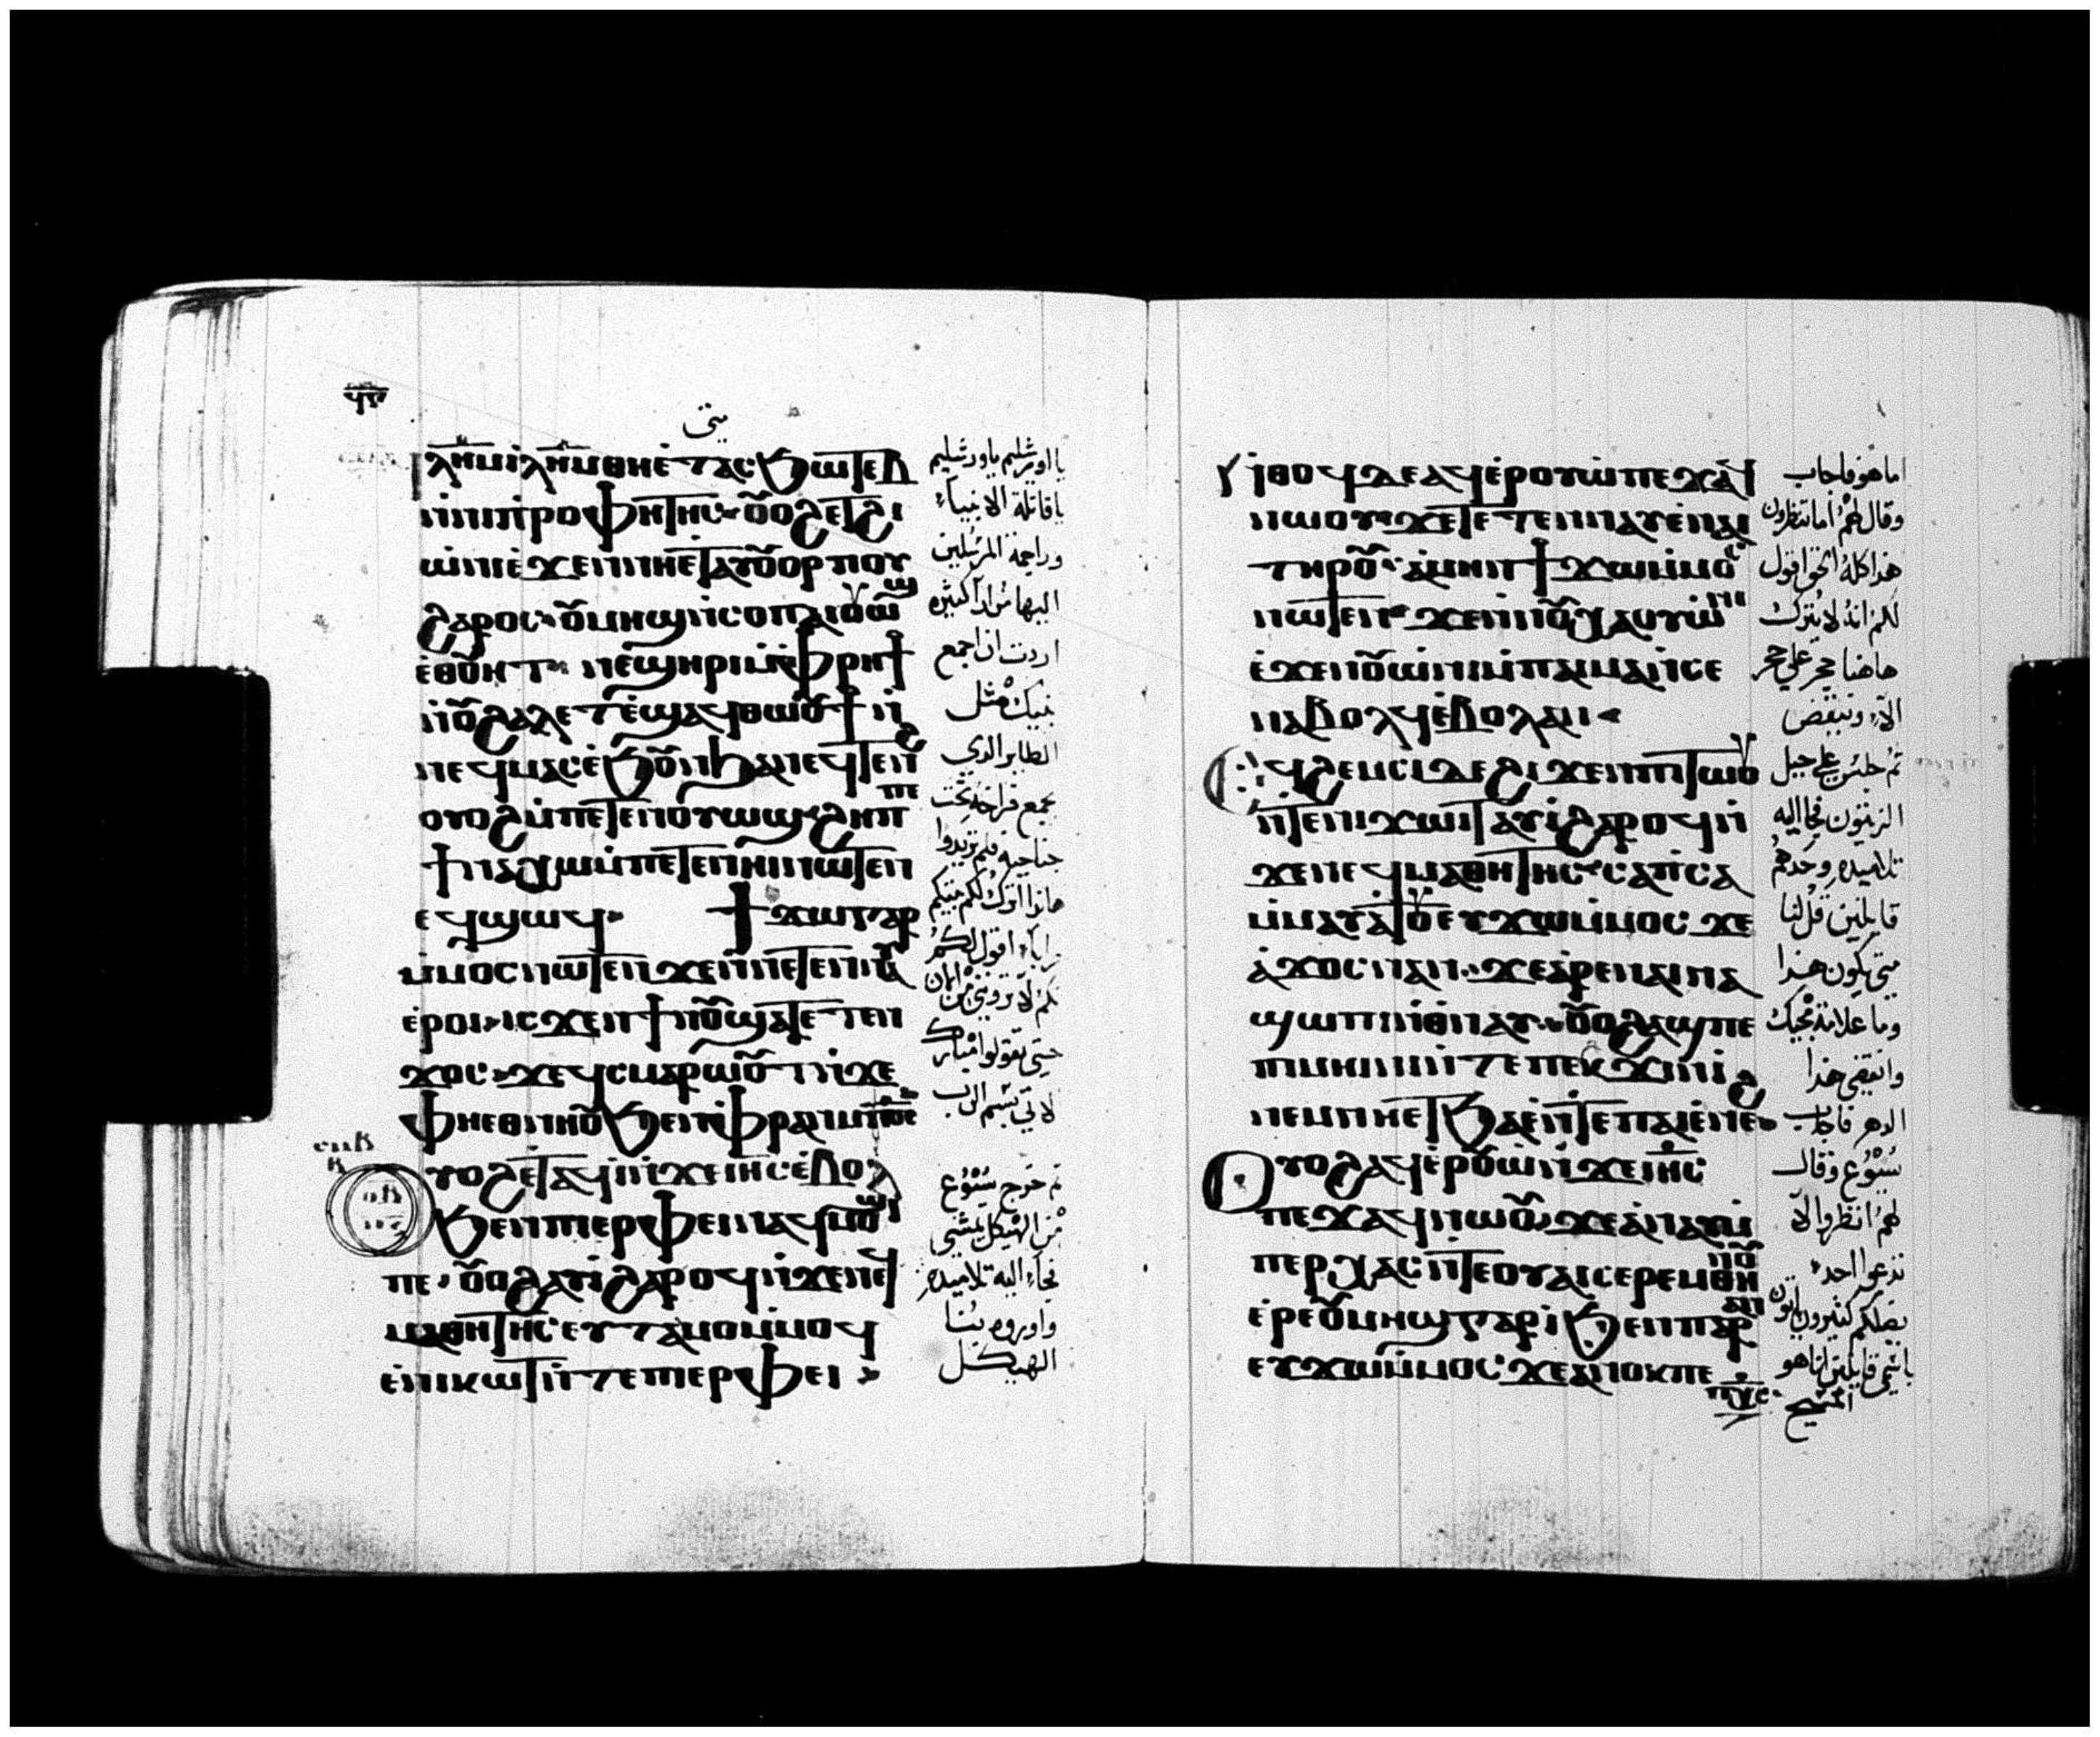 متى
ⲓⲗⲏⲙ ⲓⲗⲏⲙ ⲑⲏⲉⲧⲁⲥϧⲱⲧⲉⲃ
ⲛⲛⲓⲡⲣⲟⲫⲏⲧⲏⲥ ⲟⲩⲟϩ ⲉⲧϩⲓ
ⲱⲛⲓ ⲉϫⲉⲛ ⲛⲏⲉⲧⲁⲩⲟⲩⲟⲣⲡⲟⲩ
ϩⲁⲣⲟⲥ ⲟⲩⲙⲏϣ ⲛⲥⲟⲡ ⲁⲓⲟⲩⲱϣ
ⲉⲑⲟⲩⲉⲧ ⲛⲉϣⲏⲣⲓ ⲙⲫⲣⲏϯ
ⲛⲟⲩϩⲁⲗⲏⲧ ⲉϣⲁϥⲑⲱⲟⲩϯ ⲛ
ⲛⲉϥⲙⲁⲥ ⲉϧⲟⲩⲛ ϧⲁ ⲛⲉϥⲧⲉⲛϩ
ⲟⲩⲟϩ ⲙⲡⲉⲧⲉⲛⲟⲩⲱϣ ϩⲏⲡⲡⲉ
ϯⲛⲁⲭⲱ ⲙⲡⲉⲧⲉⲛⲏⲓ ⲛⲱⲧⲉⲛ
ⲉϥϣⲱϥ ϯϫⲱ ⲅⲁⲣ
ⲙⲙⲟⲥ ⲛⲱⲧⲉⲛ ϫⲉ ⲛⲛⲉⲧⲉⲛⲛⲁⲩ
ⲉⲣⲟⲓ ⲓⲥϫⲉⲛ ϯⲛⲟⲩ ϣⲁⲧⲉⲧⲉⲛ
ϫⲟⲥ ϫⲉ ϥⲥⲙⲁⲣⲱⲟⲩⲧ ⲛϫⲉ
ⲫⲏⲉⲑⲛⲏⲟⲩ ϧⲉⲛ ⲫⲣⲁⲛ ⲙⲡϭⲥ
ⲟⲩⲟϩ ⲉⲧⲁϥⲓ ⲛϫⲉ ⲓⲏⲥ ⲉⲃⲟⲗ
ϧⲉⲛ ⲡⲓⲉⲣⲫⲉⲓ ⲛⲁϥⲙⲟϣⲓ
ⲡⲉ ⲟⲩⲟϩ ⲁⲩⲓ ϩⲁⲣⲟϥ ⲛϫⲉ ⲛⲉϥ
ⲙⲁⲑⲏⲧⲏⲥ ⲉⲩⲧⲁⲙⲟ ⲙⲙⲟϥ
ⲉⲛⲓⲕⲱⲧ ⲛⲧⲉ ⲡⲓⲉⲣⲫⲉⲓ
يا اورشليم ياورشليم
يا قاتلة الانبياء
وراجمة المرسلين
اليها مرارا كثيره
اردت ان اجمع
بنيك مثل
الطاير الذي
يجمع فراخه تحت
جناحيه فلم تريدوا
هانذا اترك لكم بيتكم
خرابا اقول لكم
انكم لا ترونني من الان
حتى تقولوا مبارك
الاتي بسم الرب
ثم خرج يسوع
من الهيكل يمشي
فجاء اليه تلاميذه
واوروه بنا
الهيكل
ⲛⲑⲟϥ ⲇⲉ ⲁϥⲉⲣⲟⲩⲱ ⲡⲉϫⲁϥ
ⲛⲱⲟⲩ ϫⲉ ⲧⲉⲧⲉⲛⲛⲁⲩ ⲉⲛⲁⲓ
ⲧⲏⲣⲟⲩ ⲁⲙⲏⲛ ϯϫⲱ ⲙⲙⲟⲥ
ⲛⲱⲧⲉⲛ ϫⲉ ⲛⲛⲟⲩⲭⲁ ⲟⲩⲱⲛⲓ
ⲉϫⲉⲛ ⲟⲩⲱⲛⲓ ⲙⲡⲁⲓⲙⲁ ⲛⲥⲉ
ⲛⲁⲃⲟⲗϥ ⲉⲃⲟⲗ ⲁⲛ
ⲉϥϩⲉⲙⲥⲓ ⲇⲉ ϩⲓϫⲉⲛ ⲡⲓⲧⲱⲟⲩ
ⲛⲧⲉ ⲛⲓϫⲱⲓⲧ ⲁⲩⲓ ϩⲁⲣⲟϥ ⲛ
ϫⲉ ⲛⲉϥⲙⲁⲑⲏⲧⲏⲥ ⲥⲁⲡⲥⲁ
ⲙⲙⲁⲩⲁⲧⲟⲩ ⲉⲩϫⲱ ⲙⲙⲟⲥ ϫⲉ
ⲁϫⲟⲥ ⲛⲁⲛ ϫⲉ ⲁⲣⲉ ⲛⲁⲓ ⲛⲁ
ϣⲱⲡⲓ ⲛⲑⲛⲁⲩ ⲟⲩⲟϩ ⲁϣ ⲡⲉ
ⲡⲓⲙⲏⲓⲛⲓ ⲛⲧⲉ ⲡⲉⲕϫⲓⲛⲓ
ⲛⲉⲙ ⲡⲓϧⲁⲉ ⲛⲧⲉ ⲡⲁⲓⲉⲛⲉϩ
ⲟⲩⲟϩ ⲁϥⲉⲣⲟⲩⲱ ⲛϫⲉ ⲓⲏⲥ
ⲡⲉϫⲁϥ ⲛⲱⲟⲩ ϫⲉ ⲁⲛⲁⲩ
ⲙⲡⲉⲣⲭⲁⲥ ⲛⲧⲉ ⲟⲩⲁⲓ ⲥⲉⲣⲉⲙ ⲑⲏⲛⲟⲩ
ⲉⲣⲉ ⲟⲩⲙⲏϣ ⲅⲁⲣ ⲓ ϧⲉⲛ ⲡⲁⲣⲁⲛ
ⲉⲩϫⲱ ⲙⲙⲟⲥ ϫⲉ ⲁⲛⲟⲕ ⲡⲉ
ⲡⲭⲥ
اما هو فاجاب
وقال لهم اما تنظرون
هذا كله الحق اقول
لكم انه لا يترك
هاهنا حجر على حجر
الا وينقض
ثم جلس على جبل
الزيتون فجا اليه
تلاميذه وحدهم
قايلين قل لنا
متى يكون هذا
وما علامة مجيك
وانقضى هذا
الدهر فاجاب
يسوع وقال
لهم انظروا الا
تدعوا احد
يضلكم كثيرون ياتون
باسمي قايلين انا هو
المسيح